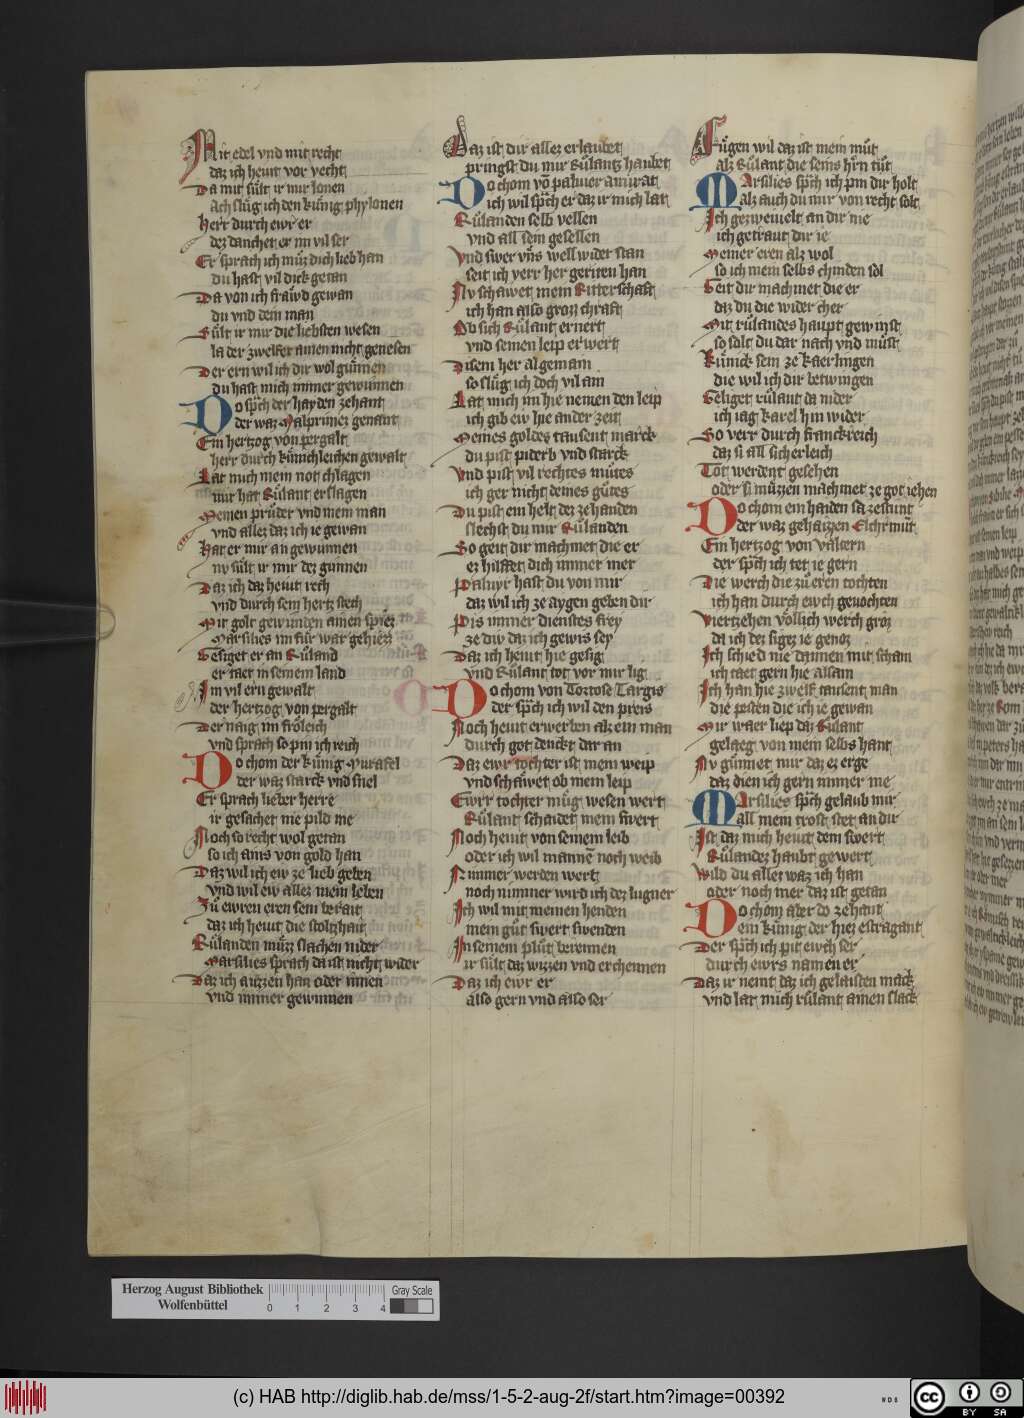 Mit edel vnd mit recht
daz ich hewt vor vecht
Da mit sült ir mir lonen
Ach slüg ich den künig phylonen
Herr durch ewr er
dez danchet er im vil ser
Er sprach ich müz dich lieb han
du hast vil dick getan
Da von ich fräwd gewan
du vnd dein man
Sült ir mir die liebsten wesen
la der zwelfer ainen nicht genesen
Der ern wil ich dir wol günnen
du hast mich immer gewunnen
Do sp̄ch der hayden zehant
der waz Malprimez genant
Ein hertzog von pergalt
herr durch künichleichen gewalt
Lat mich mein not chlagen
mir hat Rülant erslagen
Meinen prüder vnd mein man
vnd allez daz ich ie gewan
Hat er mir an gewunnen
nv sült ir mir dez gunnen
Daz ich daz hewt rech
vnd durch sein hertz stech
Mir golt gewunden ainen spiez
Marsilies im für war gehiezz
Gesiget er an Rüland
er taet in seinem land
Im vil ern gewalt
der hertzog von pergalt
Der naig im frölich
vnd sprach so pin ich reich
Do chom der künig Murafel
der waz starck vnd snel
Er sprach lieber herre
ir gesachet nie pild me
Noch so recht wol getan
so ich ains von gold han
Daz wil ich ew ze lieb geben
vnd wil ew allez mein leben
Zü ewren eren sein berait
daz ich hewt die stoltzhait
Rülanden müzz slachen nider
Marsilies sprach da ist nicht wider
Daz ich aigen han oder innen
vnd immer gewinnen
Daz ist dir allez erlaubet
pringst du mir Rülantz haubet
Do chom vō paluier amurat
ich wil sp̄ch er daz ir mich lat
Rülanden selb vellen
vnd all sein gesellen
Vnd swer vn̄s well wider stan
seit ich verr her geriten han
Nv schawet mein Ritterschaft
ich han also grozz chraft
Ob sich Rülant ernert
vnd seinen leip erwert
Disem her algemain
so slüg ich doch vil ain
Lat mich im hie nemen den leip
ich gib ew hie ander zeit
Meines goldez tausent marck
du pist piderb vnd starck
Vnd pist vil rechtes mütes
ich ger nicht deines gütes
Du pist ein helt dez ze handen
slechst du mir Rülanden
So geit dir machmet die er
ez hilffet dich immer mer
Paluyr hast du von mir
daz wil ich ze aygen geben dir
Pis immer dienstes frey
ze diw daz ich gewis sey
Daz ich hewt hie gesig
vnd Rülant tot vor mir lig
Do chom von Tortose Targis
der sp̄ch ich wil den preis
Noch hewt erwerben alz ein man
durch got denckt dar an
Daz ewr tochter ist mein weip
vnd schawet ob mein leip
Ewrr tochter müg wesen wert
Rülant schaidet mein swert
Noch hewt von seinem leib
oder ich wil mannē noch weib
Nimmer werden wert
noch nimmer wird ich dez lugner
Ich wil mit meinen henden
mein güt swert swenden
In seinem plüt berennen
ir sült daz wizzen vnd erchennen
Daz ich ewr er
also gern vnd also ser
Fügen wil daz ist mein müt
alz Rülant die seins hr̄n tüt
Marsilies sp̄ch ich pin dir holt
alz auch du mir von recht solt
Ich gezweiuelt an dir nie
ich getraut dir ie
Meiner eren alz wol
so ich mein selbs chinden sol
Seit dir machmet die er
daz du die wider cher
Mit rülandes haupt gewinst
so solt du dar nach vnd müst
Künick sein ze Kaerlingen
die wil ich dir betwingen
Geliget rülant da nider
ich iag Karel hin wider
So verr durch franckreich
daz si all sicherleich
Tot werdent gesehen
oder si müzzen machmet ze got iehen
Do chom ein haiden sa zestunt
der waz gehaizzen Elchrmüt
Ein hertzog von Valtern
der sp̄ch ich tet ie gern
Die werch die zü eren tochten
ich han durch ewch geuochten
Viertzehen völlich werch groz
da ich dez sigez ie genoz
Ich schied nie dannen mit scham
ich taet gern hie alsam
Ich han hie zwelf tausent man
die pesten die ich ie gewan
Mir waer liep daz Rülant
gelaeg von mein selbs hant
Nv günnet mir daz ez erge
daz dien ich gern immer me
Marsilies sp̄ch gelaub mir
all mein trost stet an dir
Ist daz mich hewt dein swert
Rülandez haubt gewert
Wild du allez waz ich han
oder noch mer daz ist getan
Do chom aber do zehant
Dein künig der hiez estragant
Der sp̄ch ich pit ewch ser
durch ewrs namen er
Daz ir nemt daz ich gelaisten mack
vnd lat mich rülant ainen slack
Herzog August Bibliothek
Wolfenbüttel
0 1 2 3 4
Gray Scale
(c) HAB http://diglib.hab.de/mss/1-5-2-aug-2f/start.htm?image=00392
WDB
cc BY SA